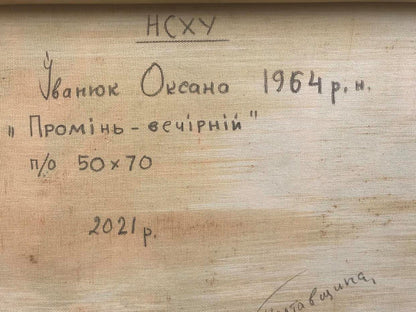 НСХУ
Іванюк Оксана 1964 р. н.
„Промінь - вечірній"
п/о 50х70
2021 р.